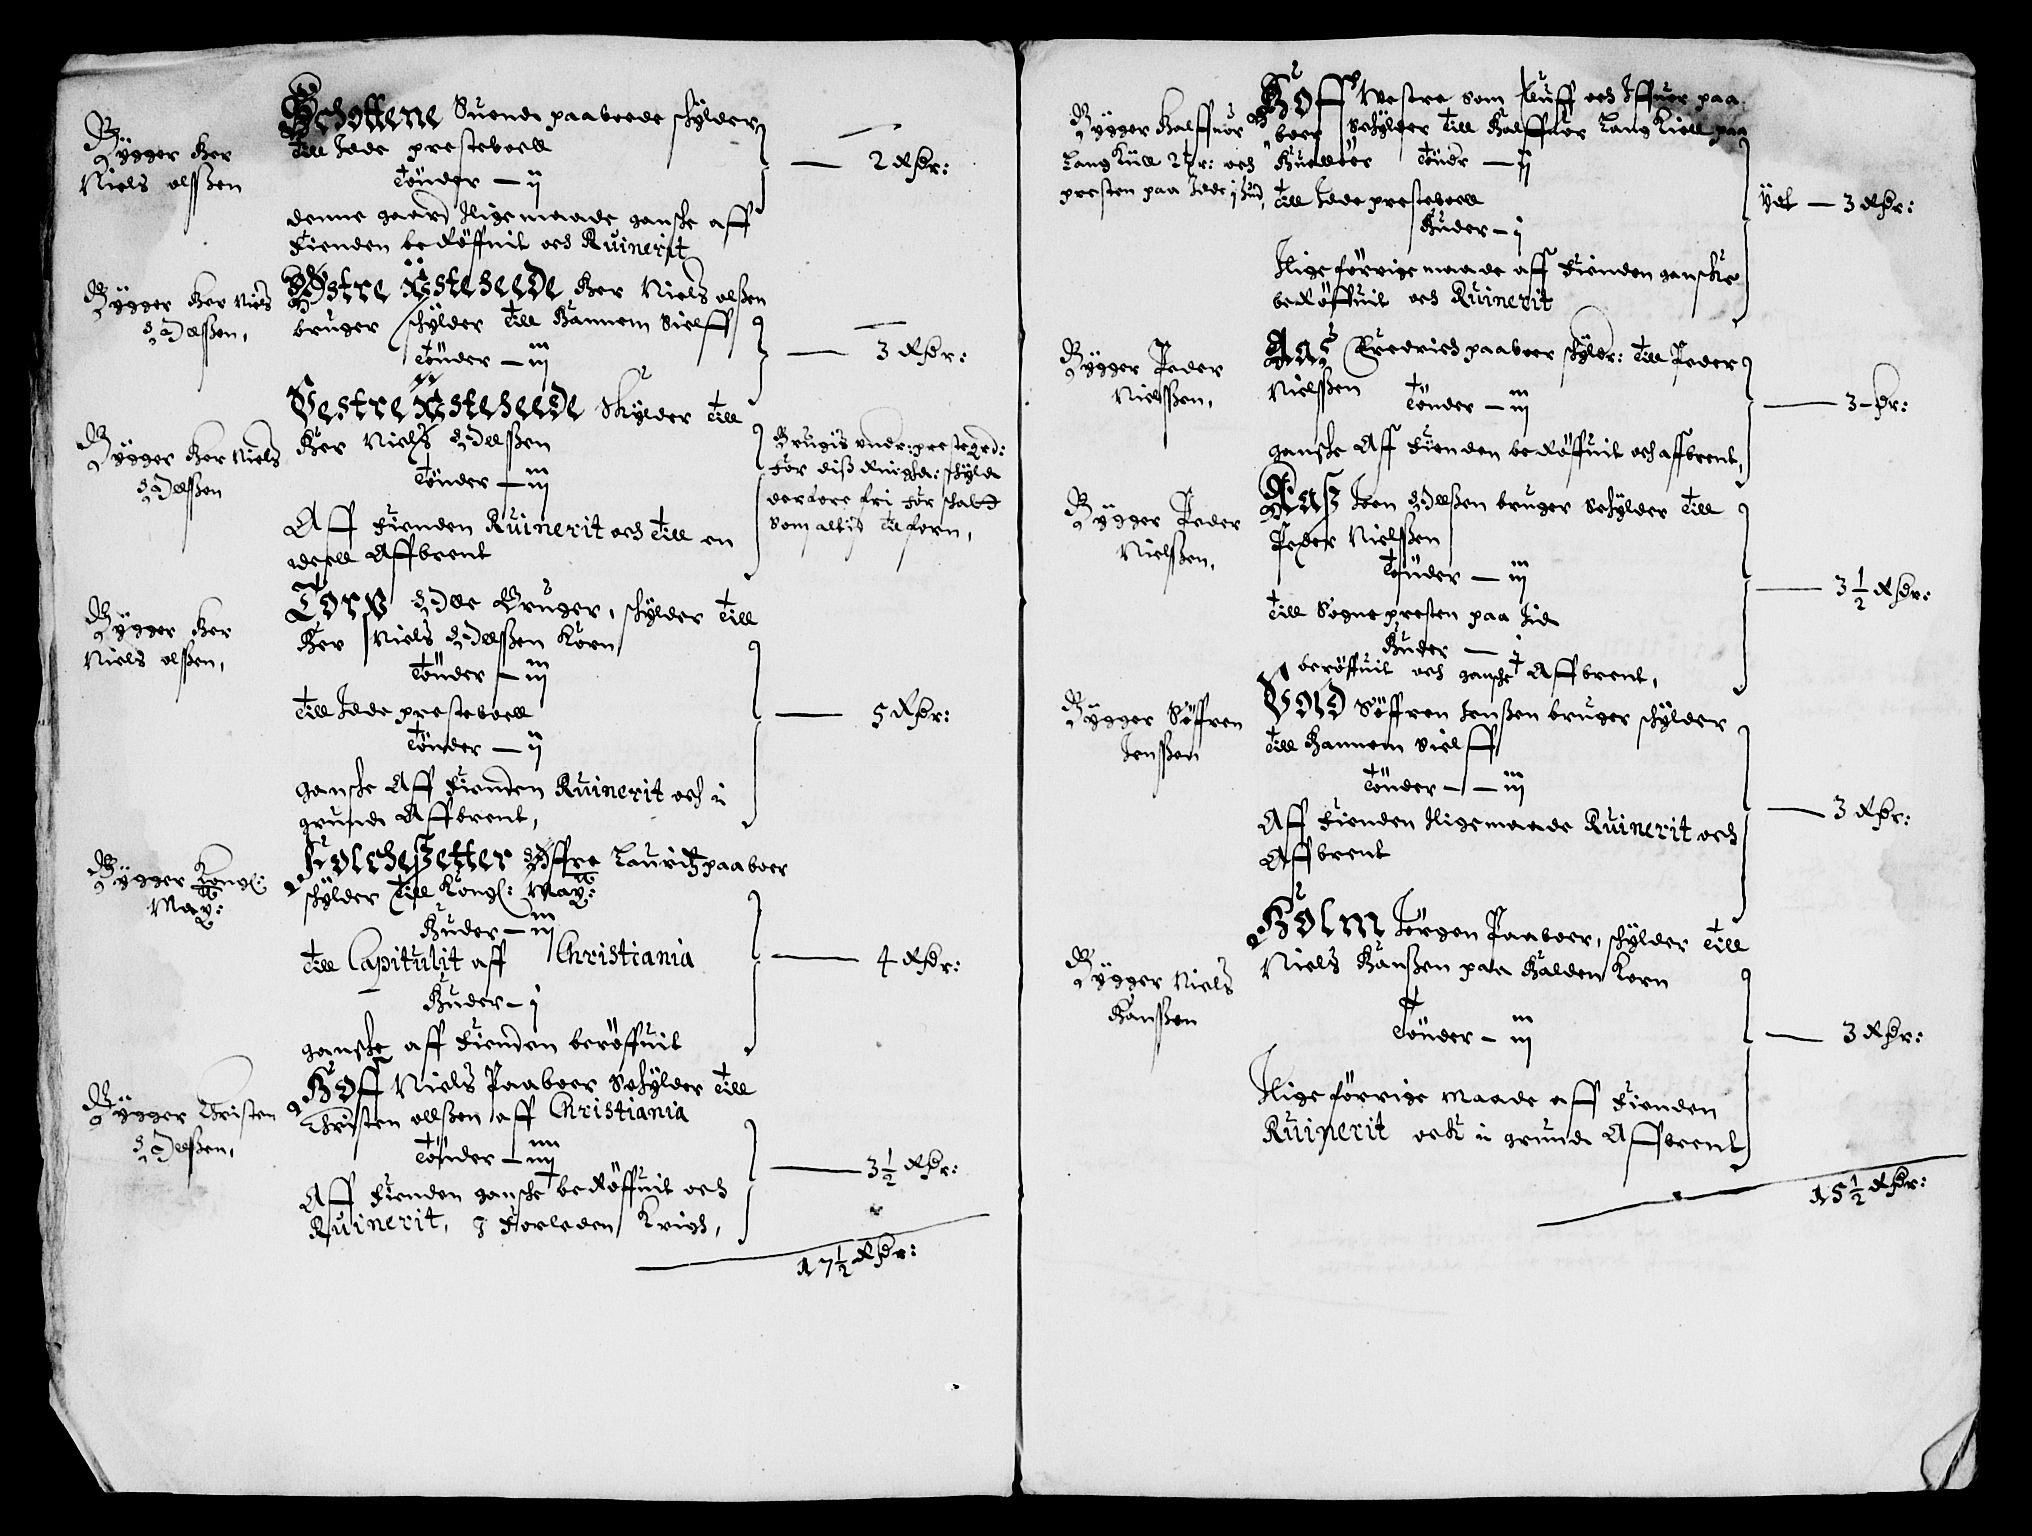 Bygger Her
Niels olssen
Schottene Suend paaboede schylder
till Idde presteboell
Tønder — ij
denne gaard ligemaade gansche aff
fienden berøffuit och Ruinerit
2 Rdr:
Bygger Her Niels
Ollssen,
Østre Xsteheede Her Niels olssen
bruger schylder till hannem Sielff
Tønder — iij
3 Rdr:
Bygger Her Niels
Ollssen
Vestre Xsteheede Skylder till
Her Niels Ollssen
Tønder — iij
Aff fienden Ruinerit och till en
deell Affbrent
Brugis undr: prestegrd:
for
derfore fri for schatt
som altid tilforn,
Bygger Her
Niels olssen,
Torp Olle Bruger, schylder till
Her Niels Ollssen Korn
Tønder — iij
till Idde presteboell
Tønder — ij
gansche Aff fienden Ruinerit och i
grund Affbrent,
5 Rdr:
Bygger Kongl:
May:
Kolchesetter Offre Lauritz paaboer
schylder till Kongl: May:
Huder — iij
till Capitulit aff Christiania
Huder — j
gansche aff fienden berøffuit
4 Rdr:
Bygger Christen
Ollssen,
Hoff Niels Paaboer Schylder till
Christen ollssen aff Christiania
Tønder — iiij
Aff fienden gansche berøffuit och
Ruinerit, I forleden Krigh,
3 1/2 Rdr:
17 1/2 Rdr:
Bygger Halffuor
Lang Kiill 2 tr: och
presten paa Idde j hud,
Hoff Westre som och Iffuer paa
boer Schylder till Halffuor Lang Kiell paa
Tøndr — ij
till Idde presteboell
Huder — j
lige forrige maade aff fienden gansche
berøffuit och Ruinerit
3 Rdr:
Bygger Peder
Nielssen,
Aas Fredrich paaboer schyldr: till Peder
Nielssen
Tønder — iij
gansche Aff fienden berøffuit och affbrent,
3 — dr:
Bygger Peder
Nielssen,
Aas Joen Ollssen bruger Schylder till
Peder Nielssen
Tønder — iij
till Sogne presten paa Id
Huder — j
berøffuit och gansche Affbrent,
3 1/2 Rdr:
Bygger Søffren
Jenssen
Vold Søffren Jenssen bruger schylder
till hannem Sielff
Tønder — iij
Aff fienden ligemaade Ruinerit och
Affbrent
3 Rdr:
Bygger Niels
Hanssen
Holm Jørgen Paaboer, schylder till
Niels Hanssen paa Halden Korn
Tønder — iij
lige forrige maade aff fienden
Ruinerit och i grund Affbrent
3 Rdr:
15 1/2 Rdr: